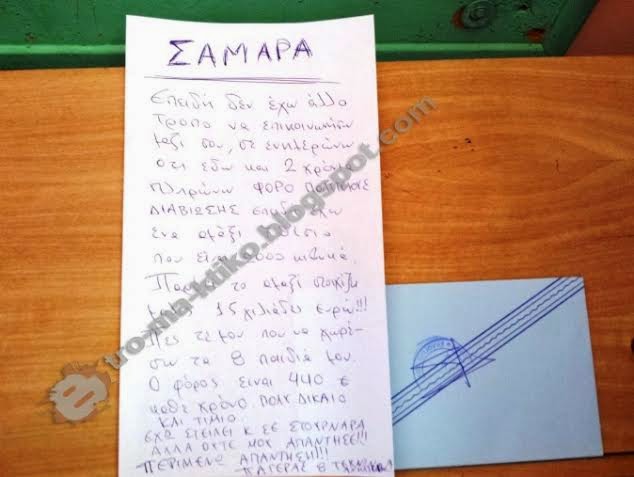 ΣΑΜΑΡΑ
Επειδή δεν έχω άλλο
τρόπο να επικοινωνήσω
μαζί σου, σε ενημερώνω
ότι εδώ και 2 χρόνια
πληρώνω ΦΟΡΟ ΠΟΛΥΤΕΛΟΥΣ
ΔΙΑΒΙΩΣΗΣ επειδή έχω
ένα αμάξι
που είναι κυβικά.
το αμάξι στοιχίζει
15 χιλιάδες ευρώ!!!
Πες τε μου που να χωρέ-
σω τα 8 παιδιά μου.
Ο φόρος είναι 440 €
κάθε χρόνο. ΠΟΛΥ ΔΙΚΑΙΟ
ΚΑΙ ΤΙΜΙΟ.
ΕΧΩ ΣΤΕΙΛΕΙ Κ ΣΕ ΣΤΟΥΡΝΑΡΑ
ΑΛΛΑ ΟΥΤΕ ΜΟΥ ΑΠΑΝΤΗΣΕ!!!
ΠΕΡΙΜΕΝΩ ΑΠΑΝΤΗΣΗ!!!
ΠΑΤΕΡΑΣ 8
tro-ma-ktiko.blogspot.com